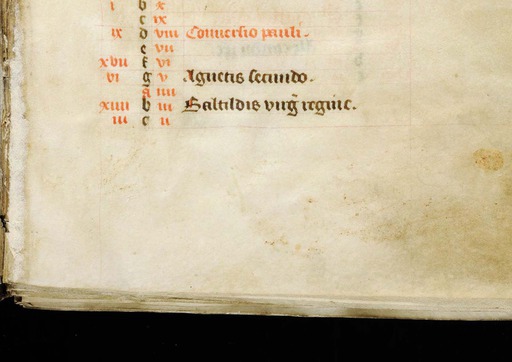 i b x
c ix
ix d viii Conuersio pauli.
e vii
xvii f vi
vi g v Agnetis secundo.
a iiii
xiiii b iii Baltildis virg̃ regine.
iii c ii